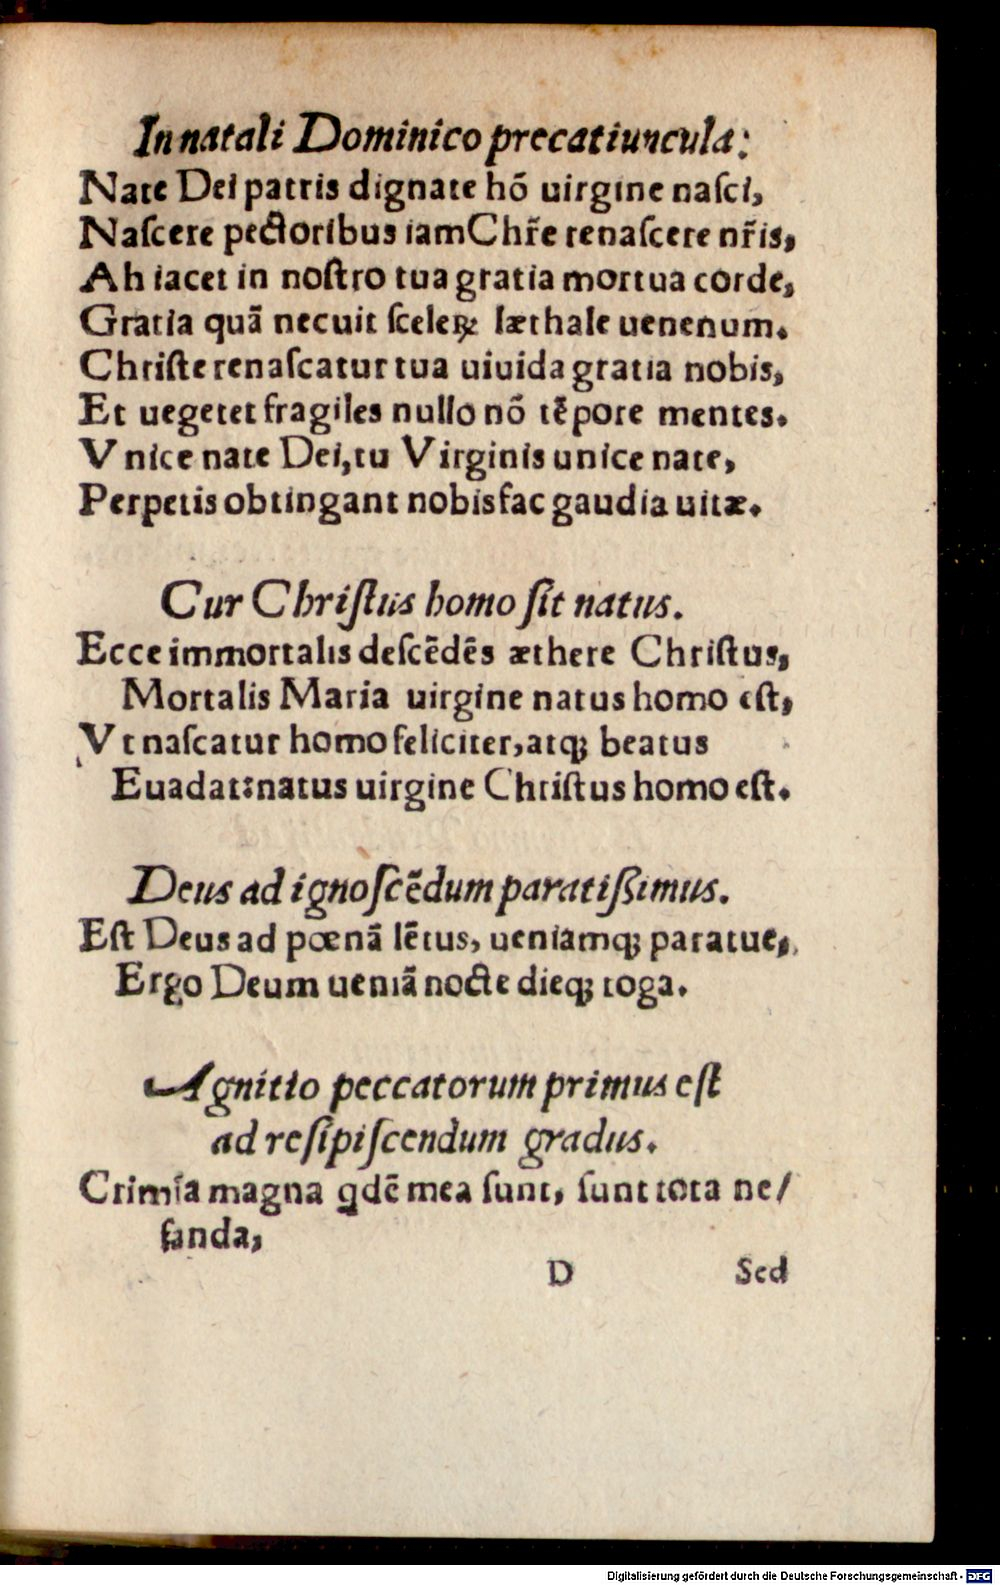 In natali Dominico precatiuncula:
Nate Dei patris dignate hõ uirgine nasci,
Nascere pectoribus iam Chr̃e renascere nr̃is,
Ah iacet in nostro tua gratia mortua corde,
Gratia quã necuit sceleꝝ læthale uenenum.
Christe renascatur tua uiuida gratia nobis,
Et uegetet fragiles nullo nõ tẽpore mentes.
Vnice nate Dei, tu Virginis unice nate,
Perpetis obtingant nobis fac gaudia uitæ.
Cur Christus homo sit natus.
Ecce immortalis descẽdẽs æthere Christus,
Mortalis Maria uirgine natus homo est,
Vt nascatur homo feliciter, atq; beatus
Euadat: natus uirgine Christus homo est.
Deus ad ignoscẽdum paratißimus.
Est Deus ad pœnã lẽtus, ueniamq; paratue,
Ergo Deum ueniã nocte dieq; roga.
Agnitio peccatorum primus est
ad resipiscendum gradus.
Crimĩa magna ꝗdẽ mea sunt, sunt tota ne/
fanda,
D Sed
Digitalisierung gefördert durch die Deutsche Forschungsgemeinschaft - DFG